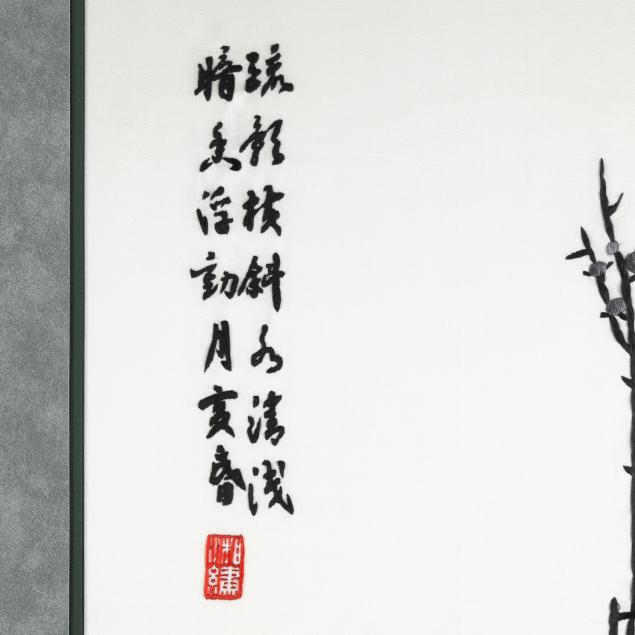 疏影横斜水清浅
暗香浮動月黄昏
湘繡